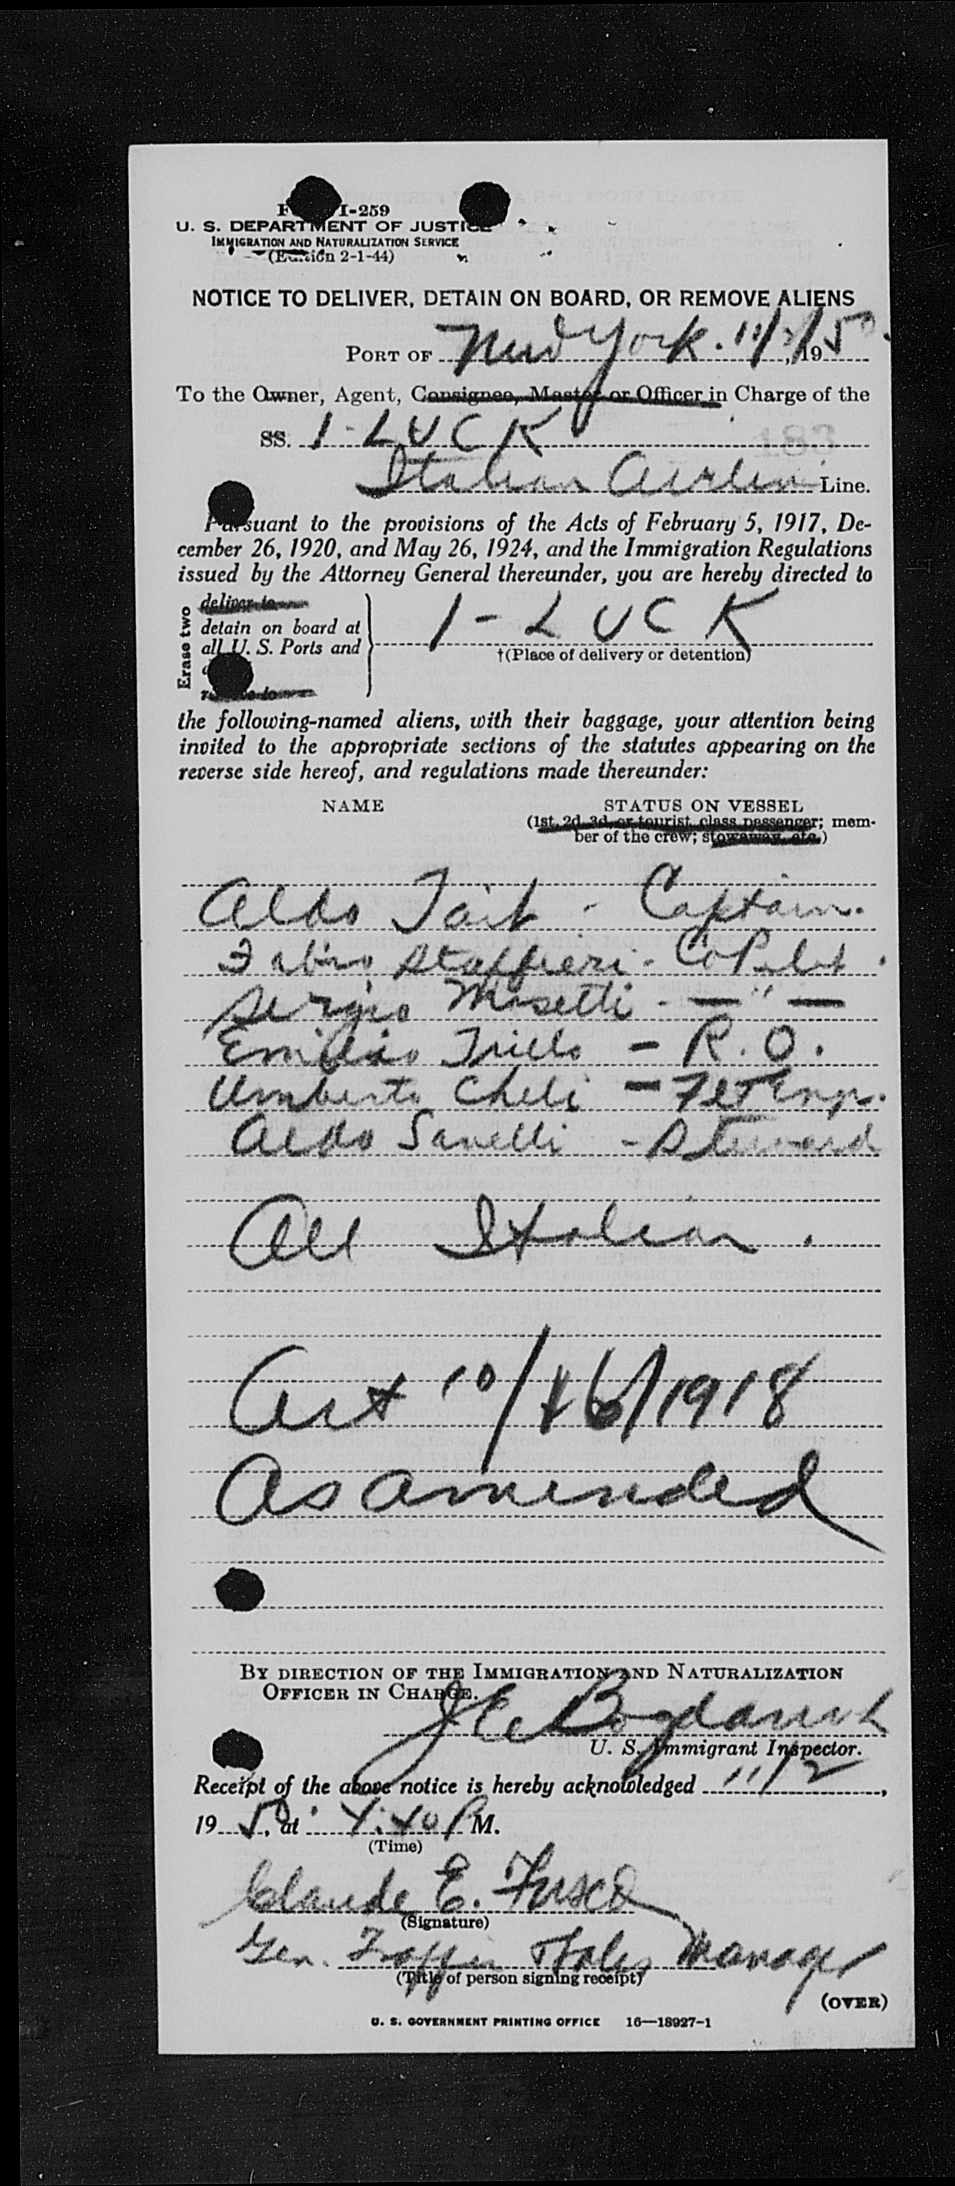 I-259
U. S. DEPARTMENT OF JUSTICE
IMMIGRATION AND NATURALIZATION SERVICE
(Edition 2-1-44)
NOTICE TO DELIVER, DETAIN ON BOARD, OR REMOVE ALIENS
PORT OF New York. 11/2/, 1950.
To the Owner, Agent, Consignee, Master or Officer in Charge of the
SS. I-LUCK
183
Italian Airline Line.
Pursuant to the provisions of the Acts of February 5, 1917, De-
cember 26, 1920, and May 26, 1924, and the Immigration Regulations
issued by the Attorney General thereunder, you are hereby directed to
Erase two
deliver to
detain on board at
all U. S. Ports and
remove to
I-LUCK
†(Place of delivery or detention)
the following-named aliens, with their baggage, your attention being
invited to the appropriate sections of the statutes appearing on the
reverse side hereof, and regulations made thereunder:
NAME STATUS ON VESSEL
(1st, 2d, 3d, or tourist class passenger; mem-
ber of the crew; stowaway, etc.)
Aldo Tait - Captain.
Fabio Staffieri - CoPilot.
Sergio Misetti - — " —
Emidio Trillo - R.O.
Umberto Cheli - Flt Engr.
Aldo Savelli - Steward
All Italian.
Act 10/16/1918
As amended
BY DIRECTION OF THE IMMIGRATION AND NATURALIZATION
OFFICER IN CHARGE.
J E Bogdanich
U. S. Immigrant Inspector.
Receipt of the above notice is hereby acknowledged 11/2,
1950, at 4:40 P M.
(Time)
Claude E. Fusco
(Signature)
Gen. Traffic Sales Manager
(Title of person signing receipt)
(OVER)
U. S. GOVERNMENT PRINTING OFFICE 16—18927-1